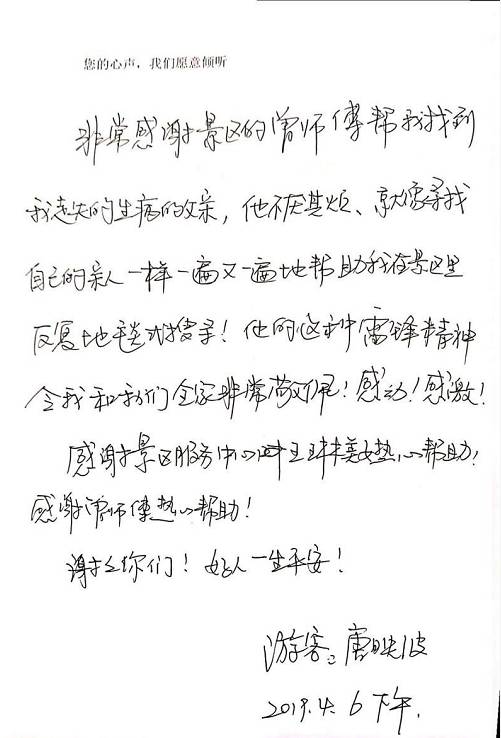 您的心声，我们愿意倾听
非常感谢景区的曾师傅帮我找到
我走失的生病的父亲，他不厌其烦、就像寻找
自己的亲人一样一遍又一遍地帮助我在景区里
反复地毯式搜寻！他的这种雷锋精神
令我和我们全家非常敬佩！感动！感激！
感谢景区服务中心叶玉琳美女热心帮助，
感谢曾师傅热心帮助！
谢谢你们！好人一生平安！
游客：唐映波
2019.4.6下午.